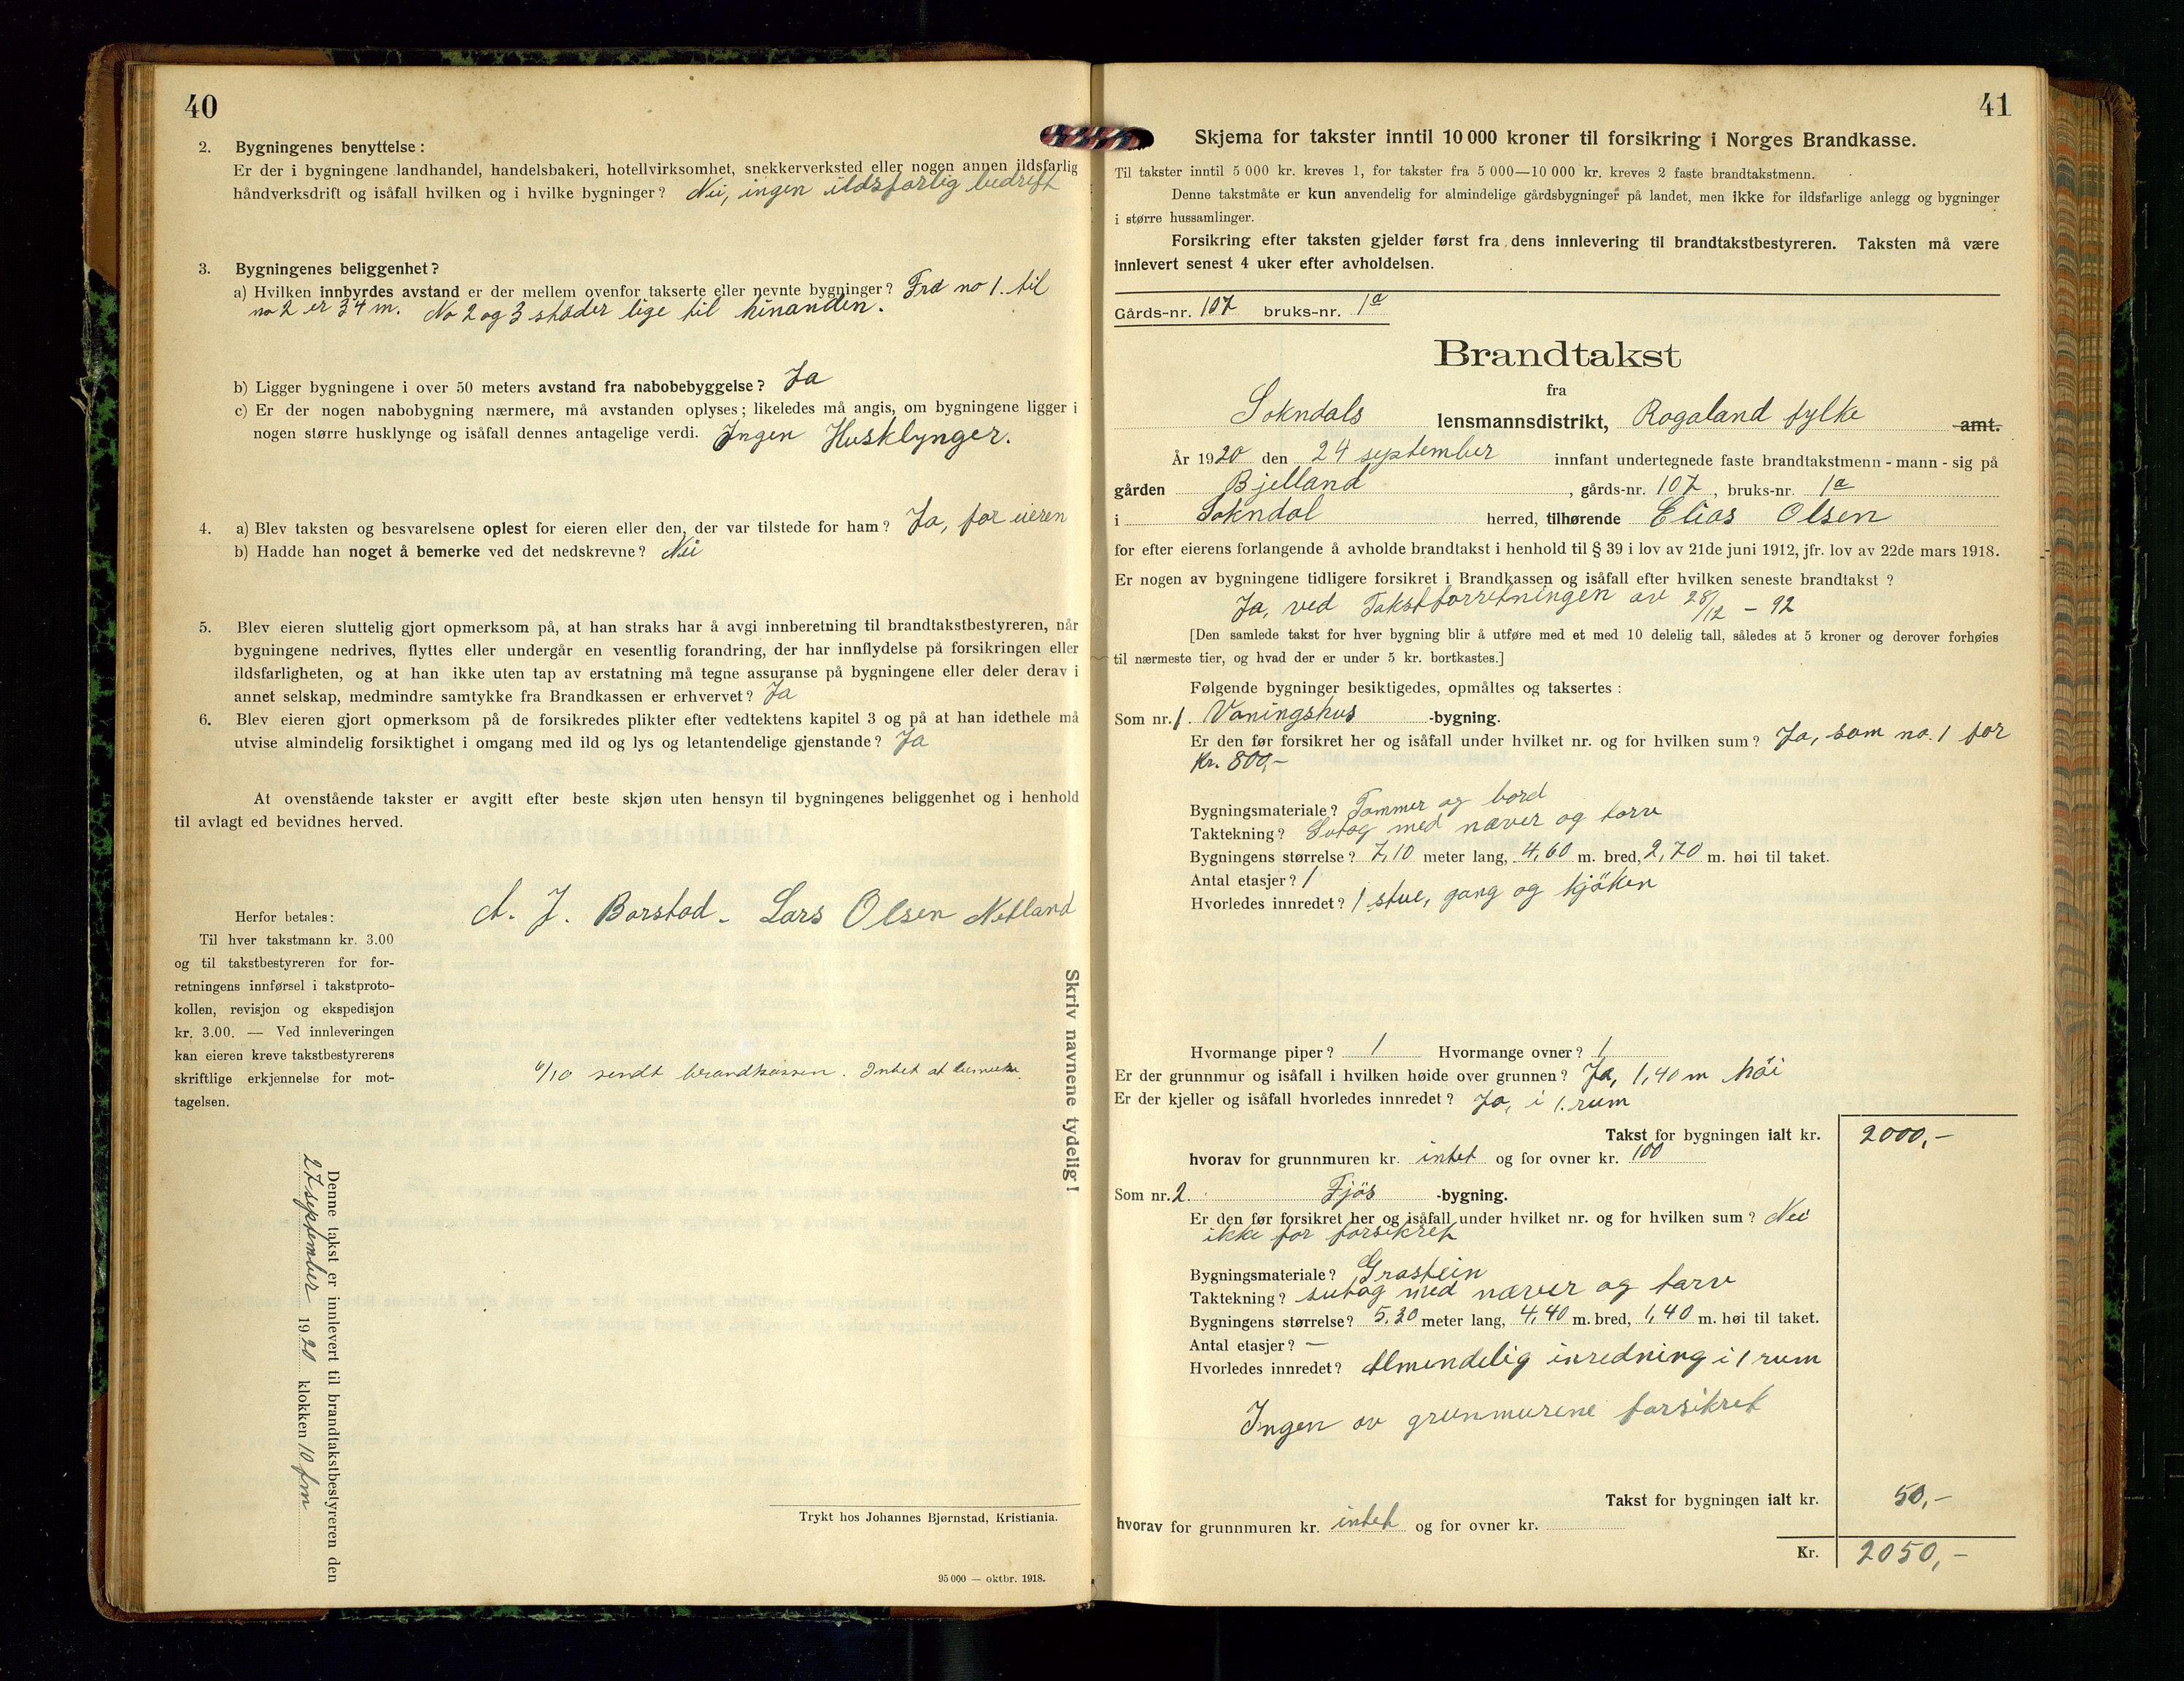 40
2. Bygningenes benyttelse :
Er der i bygningene landhandel, handelsbakeri, hotellvirksomhet, snekkerverksted eller nogen annen ildsfarlig
håndverksdrift og isåfall hvilken og i hvilke bygninger? Nei, ingen ildsfarlig bedrift
3. Bygningenes beliggenhet?
a) Hvilken innbyrdes avstand er der mellem ovenfor takserte eller nevnte bygninger? Fra no 1. til
no 2 er 34 m. No 2 og 3 støder lige til hinanden.
b) Ligger bygningene i over 50 meters avstand fra nabobebyggelse? Ja
c) Er der nogen nabobygning nærmere, må avstanden oplyses; likeledes må angis, om bygningene ligger i
nogen større husklynge og isåfall dennes antagelige verdi. Ingen Husklynger.
4. a) Blev taksten og besvarelsene oplest for eieren eller den, der var tilstede for ham? Ja, for eieren
b) Hadde han noget å bemerke ved det nedskrevne? Nei
5. Blev eieren sluttelig gjort opmerksom på, at han straks har å avgi innberetning til brandtakstbestyreren, når
bygningene nedrives, flyttes eller undergår en vesentlig forandring, der har innflydelse på forsikringen eller
ildsfarligheten, og at han ikke uten tap av erstatning må tegne assuranse på bygningene eller deler derav i
annet selskap, medmindre samtykke fra Brandkassen er erhvervet? Ja
6. Blev eieren gjort opmerksom på de forsikredes plikter efter vedtektens kapitel 3 og på at han idethele må
utvise almindelig forsiktighet i omgang med ild og lys og letantendelige gjenstande? Ja
At ovenstående takster er avgitt efter beste skjøn uten hensyn til bygningenes beliggenhet og i henhold
til avlagt ed bevidnes herved.
A. J. Barstad. Lars Olsen Netland
Herfor betales:
Til hver takstmann kr. 3.00
og til takstbestyreren for for-
retningens innførsel i takstproto-
kollen, revisjon og ekspedisjon
kr. 3.00. — Ved innleveringen
kan eieren kreve takstbestyrerens
skriftlige erkjennelse for mot-
tagelsen.
/10 sendt brandkassen. Intet at bemerke.
Skriv navnene tydelig!
Denne takst er innlevert til brandtakstbestyreren den
27 september 1920 klokken 10 fm
Trykt hos Johannes Bjørnstad, Kristiania.
95 000 — oktbr. 1918.
41
Skjema for takster inntil 10 000 kroner til forsikring i Norges Brandkasse.
Til takster inntil 5 000 kr. kreves 1, for takster fra 5 000—10 000 kr. kreves 2 faste brandtakstmenn.
Denne takstmåte er kun anvendelig for almindelige gårdsbygninger på landet, men ikke for ildsfarlige anlegg og bygninger
i større hussamlinger.
Forsikring efter taksten gjelder først fra dens innlevering til brandtakstbestyreren. Taksten må være
innlevert senest 4 uker efter avholdelsen.
Gårds-nr. 107 bruks-nr. 1a
Brandtakst
fra
Sokndals lensmannsdistrikt, Rogaland fylke amt.
År 1920 den 24 september innfant undertegnede faste brandtakstmenn - mann - sig på
gården Bjelland, gårds-nr. 107, bruks-nr. 1a
i Sokndal herred, tilhørende Elias Olsen
for efter eierens forlangende å avholde brandtakst i henhold til § 39 i lov av 21de juni 1912, jfr. lov av 22de mars 1918.
Er nogen av bygningene tidligere forsikret i Brandkassen og isåfall efter hvilken seneste brandtakst ?
Ja, ved Takstforretningen av 28/12 - 92
[Den samlede takst for hver bygning blir å utføre med et med 10 delelig tall, således at 5 kroner og derover forhøies
til nærmeste tier, og hvad der er under 5 kr. bortkastes.]
Følgende bygninger besiktigedes, opmåltes og taksertes :
Som nr. 1 Vaningshus -bygning.
Er den før forsikret her og isåfall under hvilket nr. og for hvilken sum? Ja, som no. 1 for
kr. 800,-
Bygningsmateriale? Tømmer og bord
Taktekning? Sutag med næver og torv
Bygningens størrelse? 7,10 meter lang, 4,60 m. bred, 2,70 m. høi til taket.
Antal etasjer? 1
Hvorledes innredet? 1 stue, gang og kjöken
Hvormange piper? 1 Hvormange ovner? 1
Er der grunnmur og isåfall i hvilken høide over grunnen? Ja, 1,40 m höi
Er der kjeller og isåfall hvorledes innredet? Ja, i 1. rum
Takst for bygningen ialt kr. 2000,-
hvorav for grunnmuren kr. intet og for ovner kr. 100
Som nr. 2 Fjös -bygning.
Er den før forsikret her og isåfall under hvilket nr. og for hvilken sum? Nei
ikke før forsikret
Bygningsmateriale? Grastein
Taktekning? sutag med næver og torv
Bygningens størrelse? 5,30 meter lang, 4,40 m. bred, 1,40 m. høi til taket.
Antal etasjer? -
Hvorledes innredet? Almendelig inredning i 1 rum
Ingen av grunmurene forsikret
Takst for bygningen ialt kr. 50,-
hvorav for grunnmuren kr. intet og for ovner kr.
Kr. 2050,-